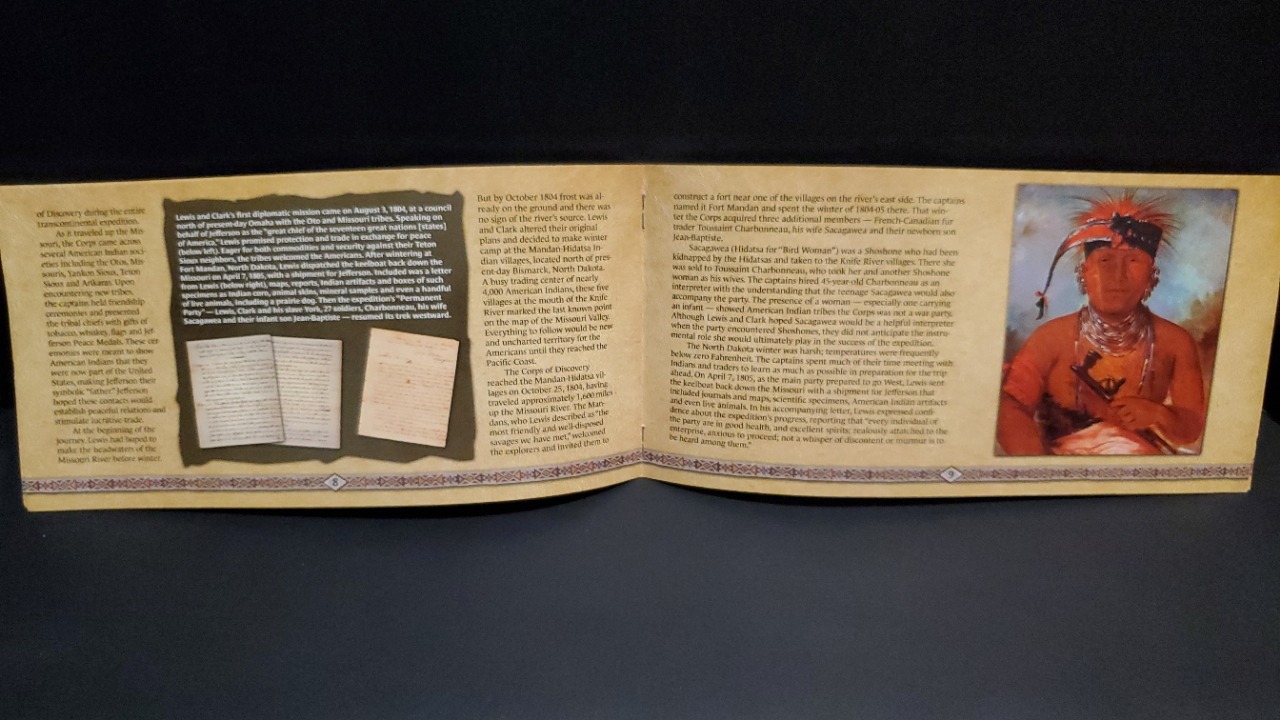 of Discovery during the entire
transcontinental expedition.
As it traveled up the Mis-
souri, the Corps came across
several American Indian soci-
eties including the Otos, Mis-
souris, Yankton Sioux, Teton
Sioux and Arikaras. Upon
encountering new tribes,
the captains held friendship
ceremonies and presented
the tribal chiefs with gifts of
tobacco, whiskey, flags and Jef-
ferson Peace Medals. These cer-
emonies were meant to show
American Indians that they
were now part of the United
States, making Jefferson their
symbolic "father." Jefferson
hoped these contacts would
establish peaceful relations and
stimulate lucrative trade.
At the beginning of the
journey, Lewis had hoped to
make the headwaters of the
Missouri River before winter.
Lewis and Clark's first diplomatic mission came on August 3, 1804, at a council
north of present-day Omaha with the Oto and Missouri tribes. Speaking on
behalf of Jefferson as the "great chief of the seventeen great nations [states]
of America," Lewis promised protection and trade in exchange for peace
(below left). Eager for both commodities and security against their Teton
Sioux neighbors, the tribes welcomed the Americans. After wintering at
Fort Mandan, North Dakota, Lewis dispatched the keelboat back down the
Missouri on April 7, 1805, with a shipment for Jefferson. Included was a letter
from Lewis (below right), maps, reports, Indian artifacts and boxes of such
specimens as Indian corn, animal skins, mineral samples and even a handful
of live animals, including a prairie dog. Then the expedition's "Permanent
Party" — Lewis, Clark and his slave York, 27 soldiers, Charbonneau, his wife
Sacagawea and their infant son Jean-Baptiste — resumed its trek westward.
But by October 1804 frost was al-
ready on the ground and there was
no sign of the river's source. Lewis
and Clark altered their original
plans and decided to make winter
camp at the Mandan-Hidatsa In-
dian villages, located north of pres-
ent-day Bismarck, North Dakota.
A busy trading center of nearly
4,000 American Indians, these five
villages at the mouth of the Knife
River marked the last known point
on the map of the Missouri Valley.
Everything to follow would be new
and uncharted territory for the
Americans until they reached the
Pacific Coast.
The Corps of Discovery
reached the Mandan-Hidatsa vil-
lages on October 25, 1804, having
traveled approximately 1,600 miles
up the Missouri River. The Man-
dans, who Lewis described as "the
most friendly and well-disposed
savages we have met," welcomed
the explorers and invited them to
8
construct a fort near one of the villages on the river's east side. The captains
named it Fort Mandan and spent the winter of 1804-05 there. That win-
ter the Corps acquired three additional members — French-Canadian fur
trader Toussaint Charbonneau, his wife Sacagawea and their newborn son
Jean-Baptiste.
Sacagawea (Hidatsa for "Bird Woman") was a Shoshone who had been
kidnapped by the Hidatsas and taken to the Knife River villages. There she
was sold to Toussaint Charbonneau, who took her and another Shoshone
woman as his wives. The captains hired 45-year-old Charbonneau as an
interpreter with the understanding that the teenage Sacagawea would also
accompany the party. The presence of a woman — especially one carrying
an infant — showed American Indian tribes the Corps was not a war party.
Although Lewis and Clark hoped Sacagawea would be a helpful interpreter
when the party encountered Shoshones, they did not anticipate the instru-
mental role she would ultimately play in the success of the expedition.
The North Dakota winter was harsh; temperatures were frequently
below zero Fahrenheit. The captains spent much of their time meeting with
Indians and traders to learn as much as possible in preparation for the trip
ahead. On April 7, 1805, as the main party prepared to go West, Lewis sent
the keelboat back down the Missouri with a shipment for Jefferson that
included journals and maps, scientific specimens, American Indian artifacts
and even live animals. In his accompanying letter, Lewis expressed confi-
dence about the expedition's progress, reporting that "every individual of
the party are in good health, and excellent spirits; zealously attatched to the
enterprise, anxious to proceed; not a whisper of discontent or murmur is to
be heard among them."
9